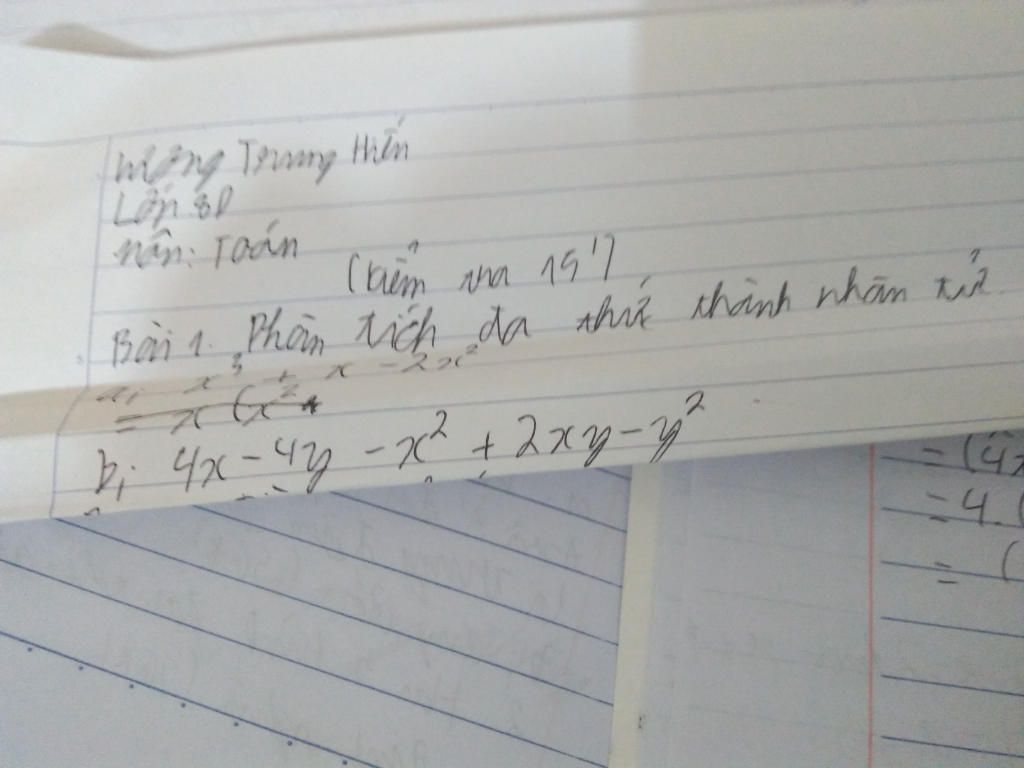 Trung Hiến
Lớp 8D
Toán
(kiểm tra 15')
Bài 1. Phân tích đa thức thành nhân tử
a, x³ + x - 2x²
= x (x²
b, 4x - 4y - x² + 2xy - y²
= (4x
= 4. (
= (